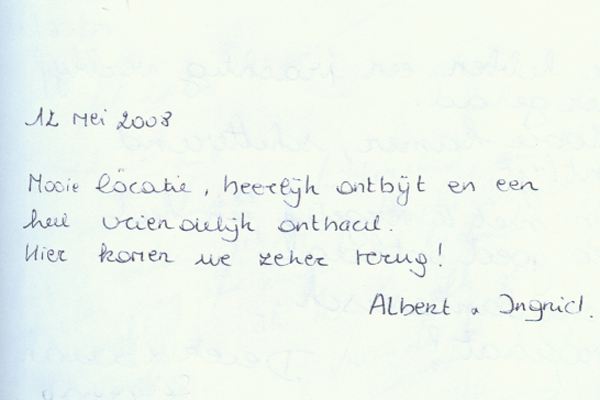 12 Mei 2008
Mooie locatie, heerlijk ontbijt en een
heel vriendelijk onthaal.
Hier komen we zeker terug!
Albert & Ingrid.